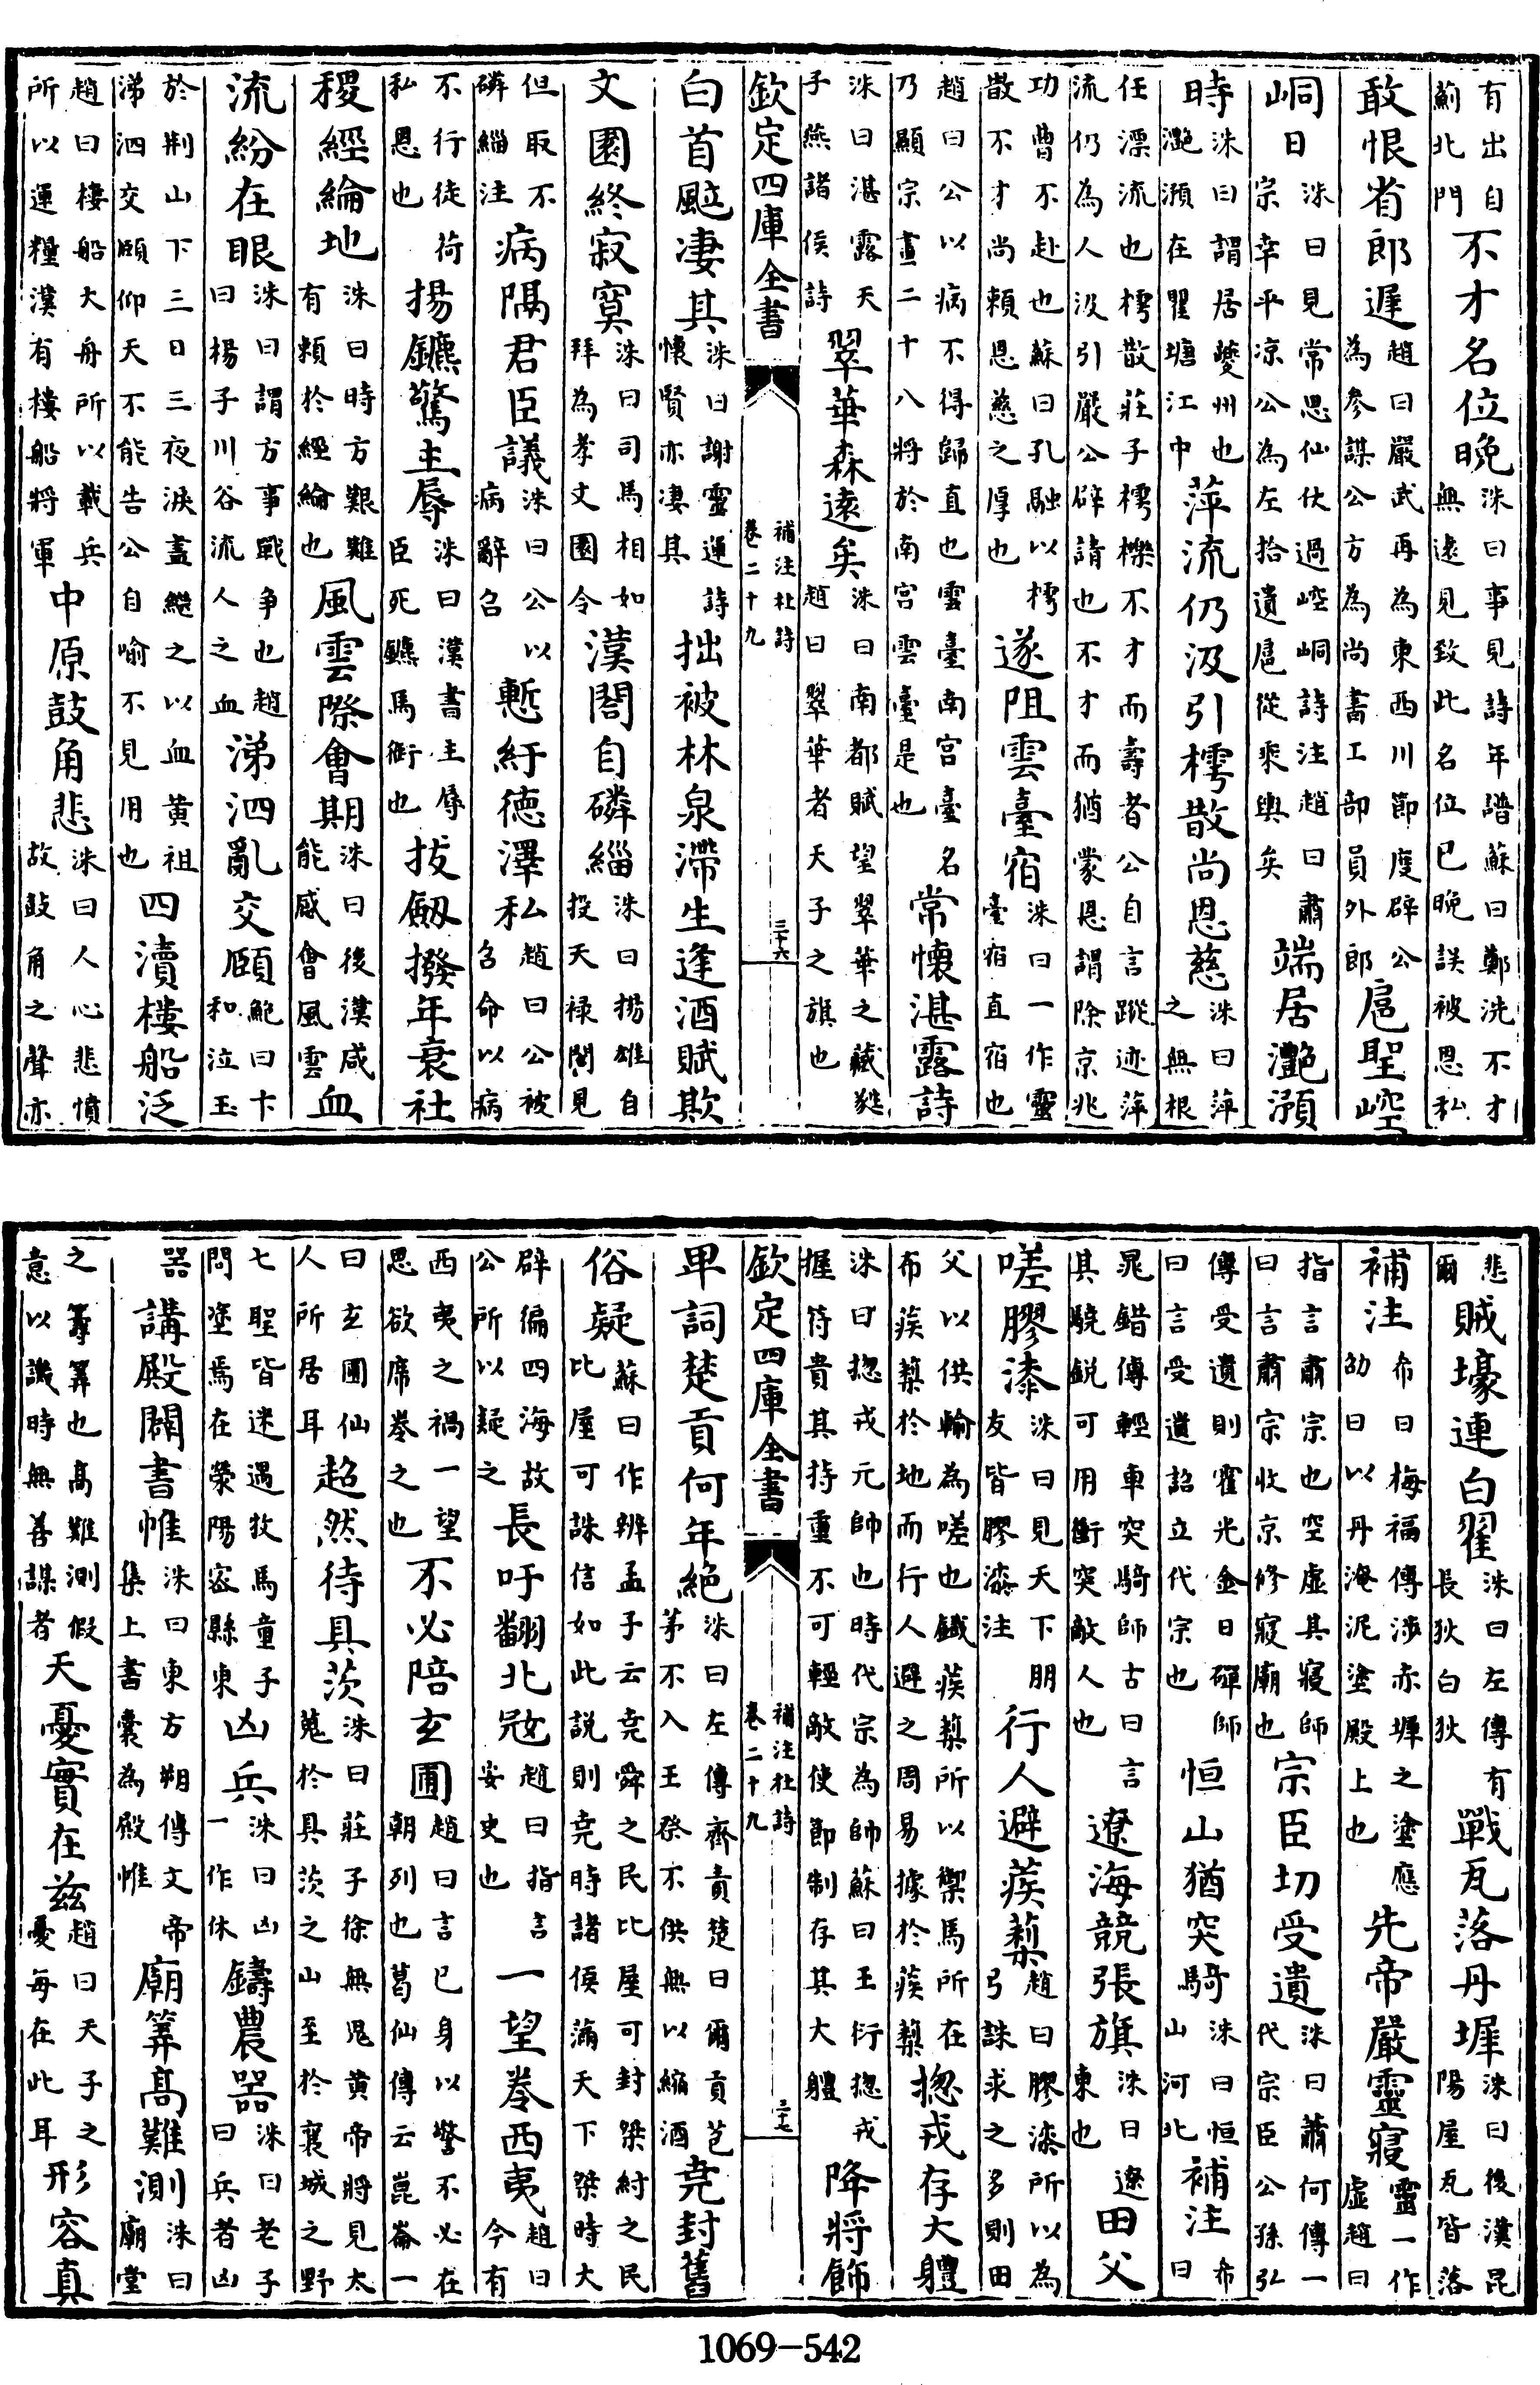 有出自薊北門不才名位晚洙曰事見詩年譜蘇曰鄭洗不才無遠見致此名位已晚誤被恩私
敢恨省郎遲趙曰嚴武再為東西川節度辟公為參謀公方為尚書工部員外郎扈聖崆
峒日洙曰見常思仙仗過崆峒詩注趙曰肅宗幸平凉公為左拾遺扈從乘輿矣端居灔澦
時洙曰謂居夔州也灔澦在瞿塘江中萍流仍汲引樗散尚恩慈洙曰萍之無根
任漂流也樗散莊子樗櫟不才而壽者公自言蹤迹萍流仍為人汲引嚴公辟請也不才而猶蒙恩謂除京兆
功曹不赴也蘇曰孔融以樗散不才尚頼恩慈之厚也遂阻雲臺宿洙曰一作靈臺宿直宿也
趙曰公以病不得歸直也雲臺南宫臺名乃顯宗畫二十八將於南宫雲臺是也常懷湛露詩
洙曰湛露天子燕諸侯詩翠華森逺矣洙曰南都賦望翠華之葳蕤趙曰翠華者天子之旗也
欽定四庫全書 補注杜詩卷二十九 三十六
白首颯凄其洙曰謝靈運詩懷賢亦凄其拙被林泉滯生逢酒賦欺
文園終寂寞洙曰司馬相如拜為孝文園令漢閣自磷緇洙曰揚雄自投天禄閣見
但取不磷緇注病隔君臣議洙曰公以病辭召慙紆德澤私趙曰公被召命以病
不行徒荷私恩也揚鑣驚主辱洙曰漢書主辱臣死鑣馬銜也拔劒撥年衰社
稷經綸地洙曰時方艱難有頼於經綸也風雲際會期洙曰後漢咸能感會風雲血
流紛在眼洙曰謂方事戰争也趙曰楊子川谷流人之血涕泗亂交頤鮑曰卞和泣玉
於荆山下三日三夜淚盡繼之以血黄祖涕泗交頤仰天不能告公自喻不見用也四瀆樓船泛
趙曰樓船大舟所以載兵所以運糧漢有樓船將軍中原鼓角悲洙曰人心悲憤故鼓角之聲亦
悲爾賊壕連白翟洙曰左傳有長狄白狄戰瓦落丹墀洙曰後漢昆陽屋瓦皆落
補注布曰梅福傳涉赤墀之塗應劭曰以丹淹泥塗殿上也先帝嚴靈寢靈一作虛趙曰
指言肅宗也空虛其寢師曰言肅宗收京修寢廟也宗臣切受遺洙曰蕭何傳一代宗臣公孫弘
傳受遺則霍光金日磾師曰言受遺詔立代宗也恒山猶突騎洙曰恒山河北補注布曰
晁錯傳輕車突騎師古曰言其驍鋭可用衝突敵人也遼海競張旗洙曰遼東也田父
嗟膠漆洙曰見天下朋友皆膠漆注行人避蒺藜趙曰膠漆所以為弓誅求之多則田
父以供輸為嗟也鐵蒺藜所以禦馬所在布蒺藜於地而行人避之周易據於蒺藜揔戎存大體
洙曰揔戎元帥也時代宗為帥蘇曰王衍揔戎握符貴其持重不可輕敵使節制存其大體降將飾
欽定四庫全書 補注杜詩卷二十九 三十七
卑詞楚貢何年絕洙曰左傳齊責楚曰爾貢苞茅不入王祭不供無以縮酒堯封舊
俗疑蘇曰作辨孟子云堯舜之民比屋可封桀紂之民比屋可誅信如此説則堯時諸侯滿天下桀時大
辟徧四海故公所以疑之長吁翻北寇趙曰指言安史也一望卷西夷趙曰今有
西夷之禍一望思欲席卷之也不必陪玄圃趙曰言已身以警不必在朝列也葛仙傳云崑崙一
曰玄圃仙人所居耳超然待具茨洙曰莊子徐無鬼黄帝將見大隗於具茨之山至於襄城之野
七聖皆迷遇牧馬童子問塗焉在滎陽密縣東凶兵洙曰凶一作休鑄農器洙曰老子曰兵者凶
器講殿闢書帷洙曰東方朔傳文帝集上書囊為殿帷廟筭高難測洙曰廟堂
之籌筭也高難測假意以譏時無善謀者天憂實在兹趙曰天子之憂每在此耳形容真
1069—542